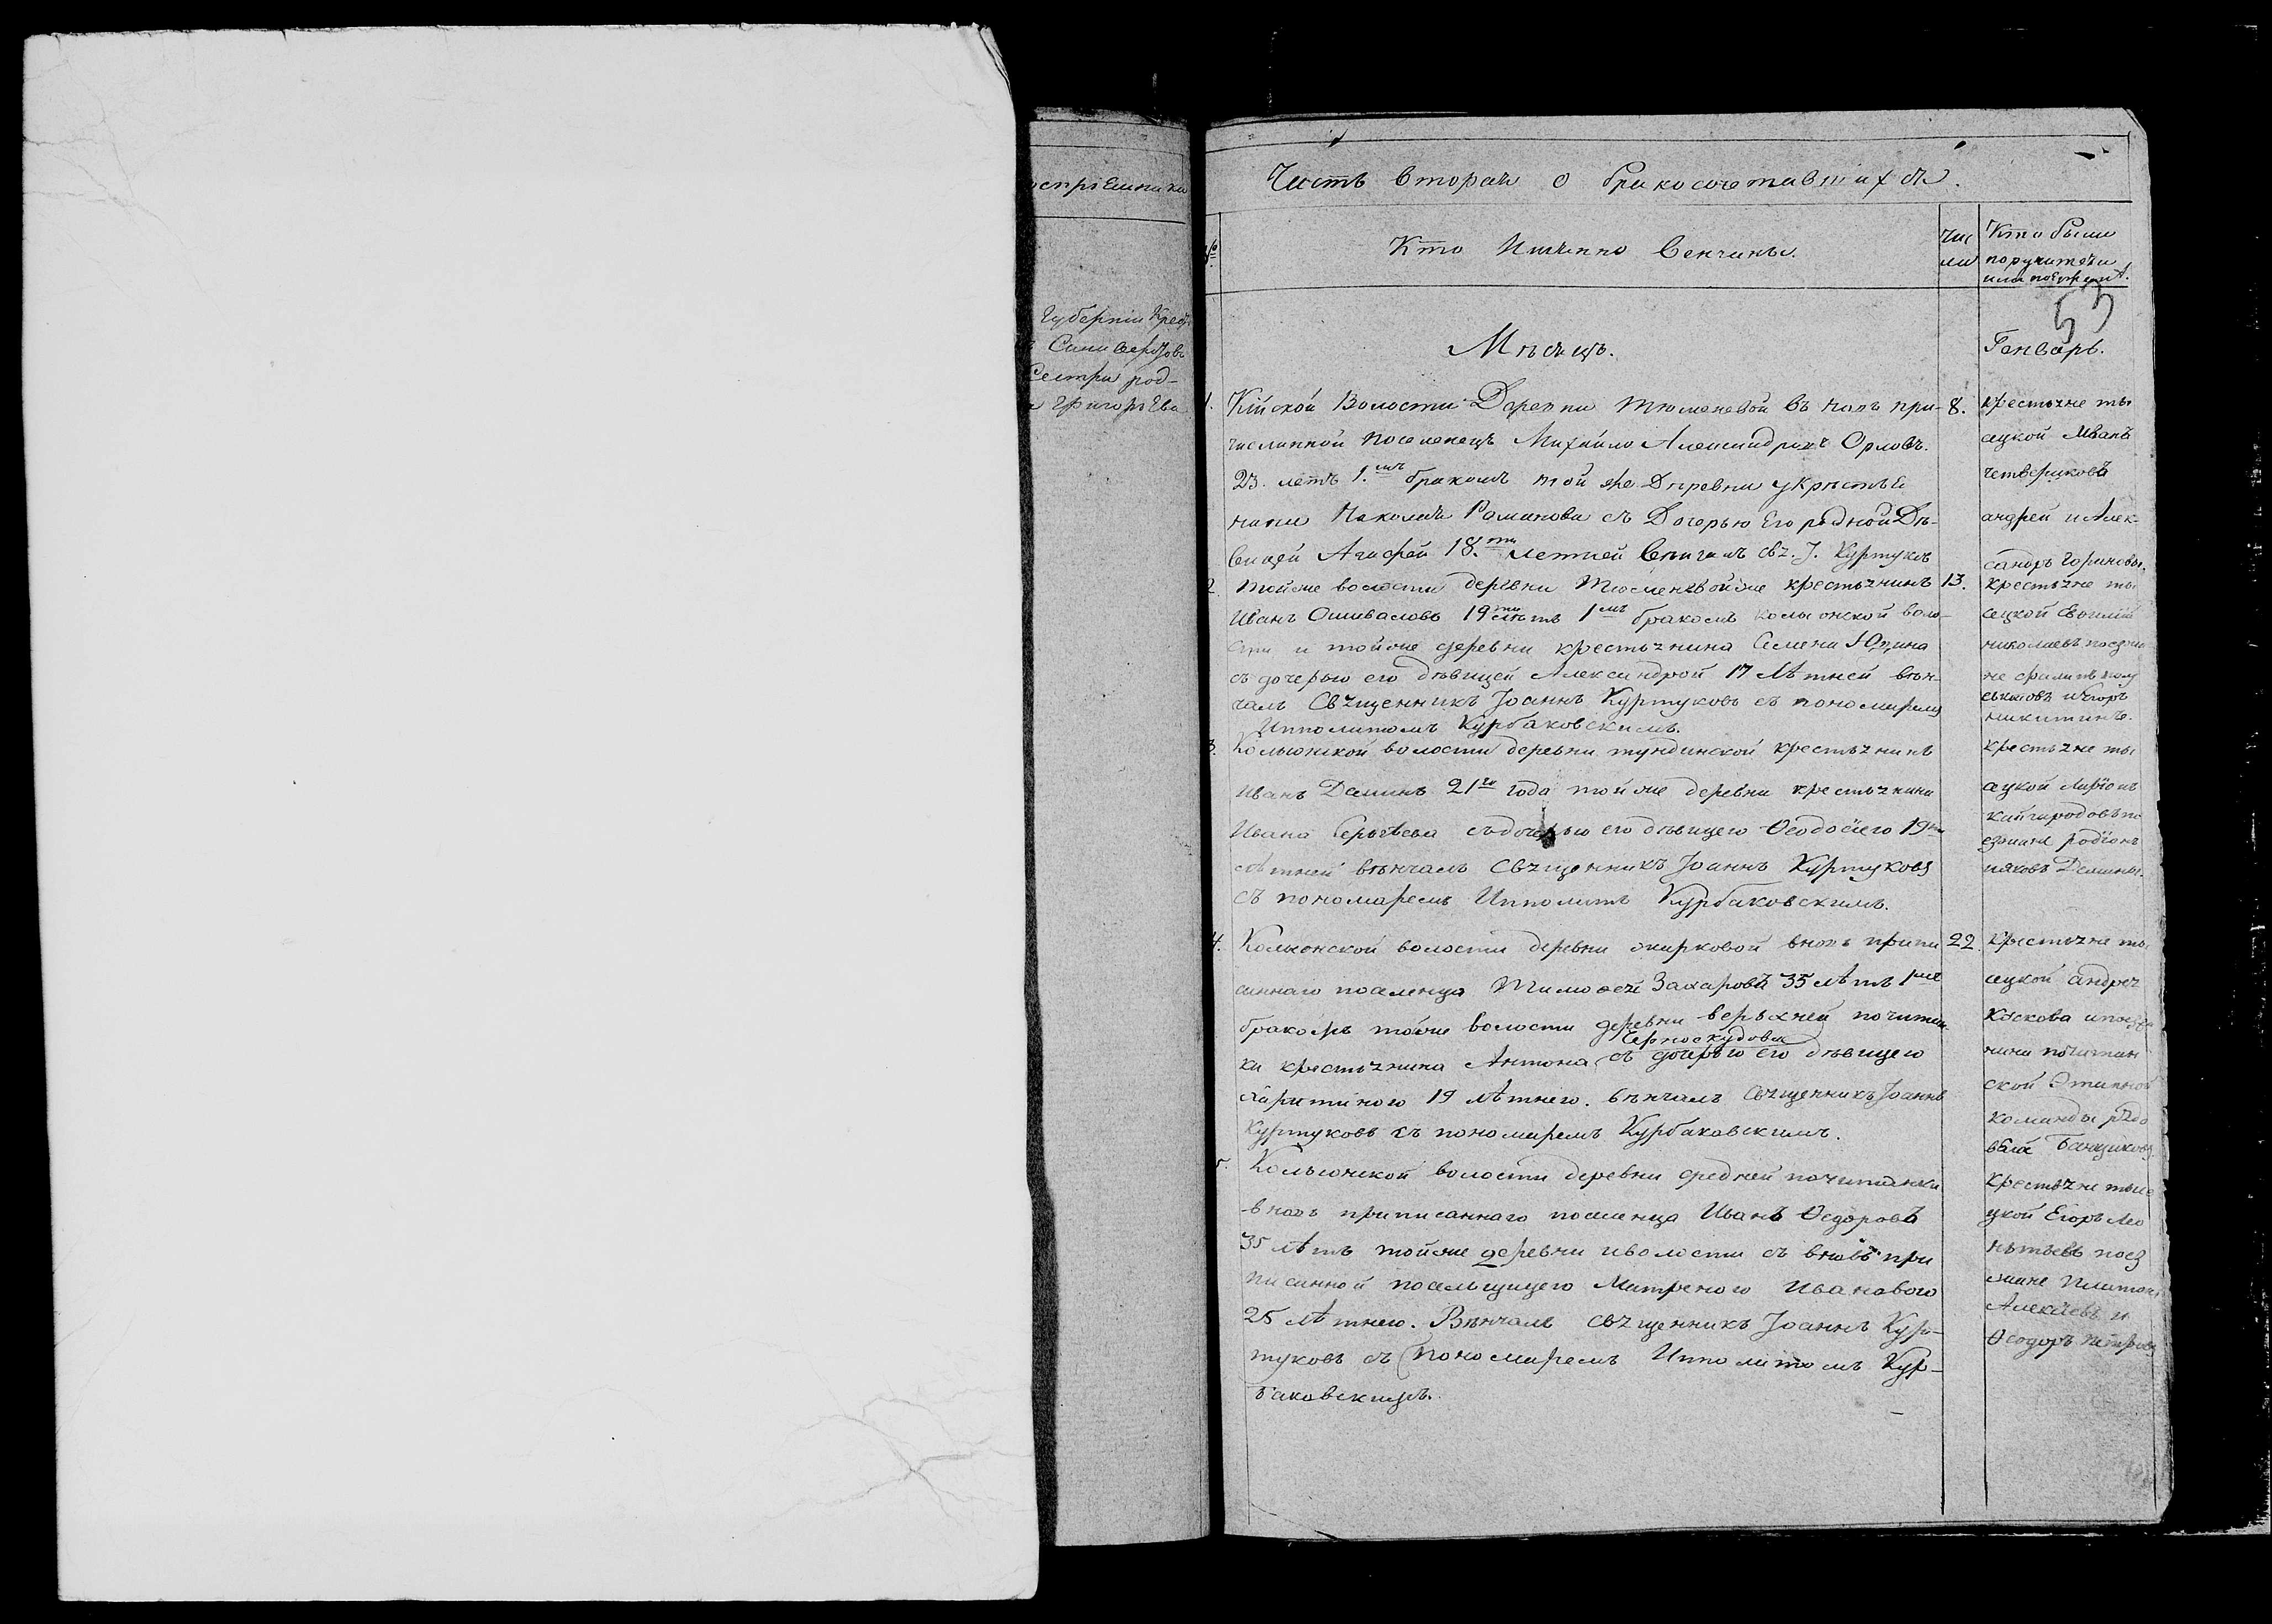 оспріемника
Губерніи Крес
Сели
Сестра род-
Григорьева
Часть вторая о бракосочетавшихся.
№
Кто именно венчаны.
Чис
ла
Кто были
поручители
или поезжан.
53
Мѣсяцъ.
Генварь.
1. Кійской Волости Деревни Тюменевой въ новь при-
численной поселенецъ Михайло Александровъ Орловъ.
23. летъ 1.мъ бракомъ той же Деревни у крестье
нина Николая Романова съ Дочерью его родной Дѣ-
вицей Агафей 18.ти летней венчалъ свя. І. Куртуковъ
8.
крестьяне ты
сяцкой Иванъ
четвериковъ
андрей и Алек-
сандръ Гориновы.
2. тойже волости деревни Тюменевойже крестьянинъ
Иванъ Ошиваловъ 19ти лѣтъ 1мъ бракомъ колыонской воло-
сти и тойже деревни крестьянина Семена Юдина
съ дочерью его дѣвицей Александрой 17 лѣтней вѣн-
чалъ Священникъ Іоаннъ Куртуковъ съ пономаремъ
Ипполитомъ Курбаковскимъ.
13.
крестьяне ты
сецкой
николаевъ поезжа
не
и Егоръ
никитинъ.
3. Колыонской волости деревни тундинской крестьянинъ
Иванъ Деминъ 21го года той же деревни крестьянина
Ивана Сергѣева съ дочерью его дѣвицею Ѳеодосіею 19ти
лѣтней вѣнчалъ Священникъ Іоаннъ Куртуковъ
съ пономаремъ Ипполитъ Курбаковскимъ.
крестьяне ты
сяцкой Ларіонъ
кайгородовъ по
езжана родіонъ
ияковъ Демины.
4. Колыонской волости деревни жирковой вновь припи
саннаго поселенца Тимоѳей Захаровъ 35 лѣтъ 1мъ
бракомъ тойже волости деревни верьхней почитан
ки крестьянина Антона Черноскудова съ дочерью его дѣвицею
харитиною 19 лѣтнею. вѣнчалъ Священникъ Іоаннъ
Куртуковъ съ пономаремъ Курбаковскимъ.
22.
Крестьяне ты
сецкой андрей
Коскова и поезжа
нина почитан
ской Этапной
команды рядо
вбай Банщиковъ.
5. Колыонской волости деревни средней почитанки
вновь приписаннаго поселенца Иванъ Ѳедоровъ
35 лѣтъ тойже деревни иволости съ вновь при
писанной посельщицею Матреною Ивановою
25 лѣтнею. Вѣнчалъ священникъ Іоаннъ Кур-
туковъ съ Пономаремъ Ипполитомъ Кур-
баковскимъ.
Крестьяне тыс
яцкой Егоръ Лео
нтьевъ поез
жане Платонъ
Алексѣевъ и
Ѳеодоръ Петровъ